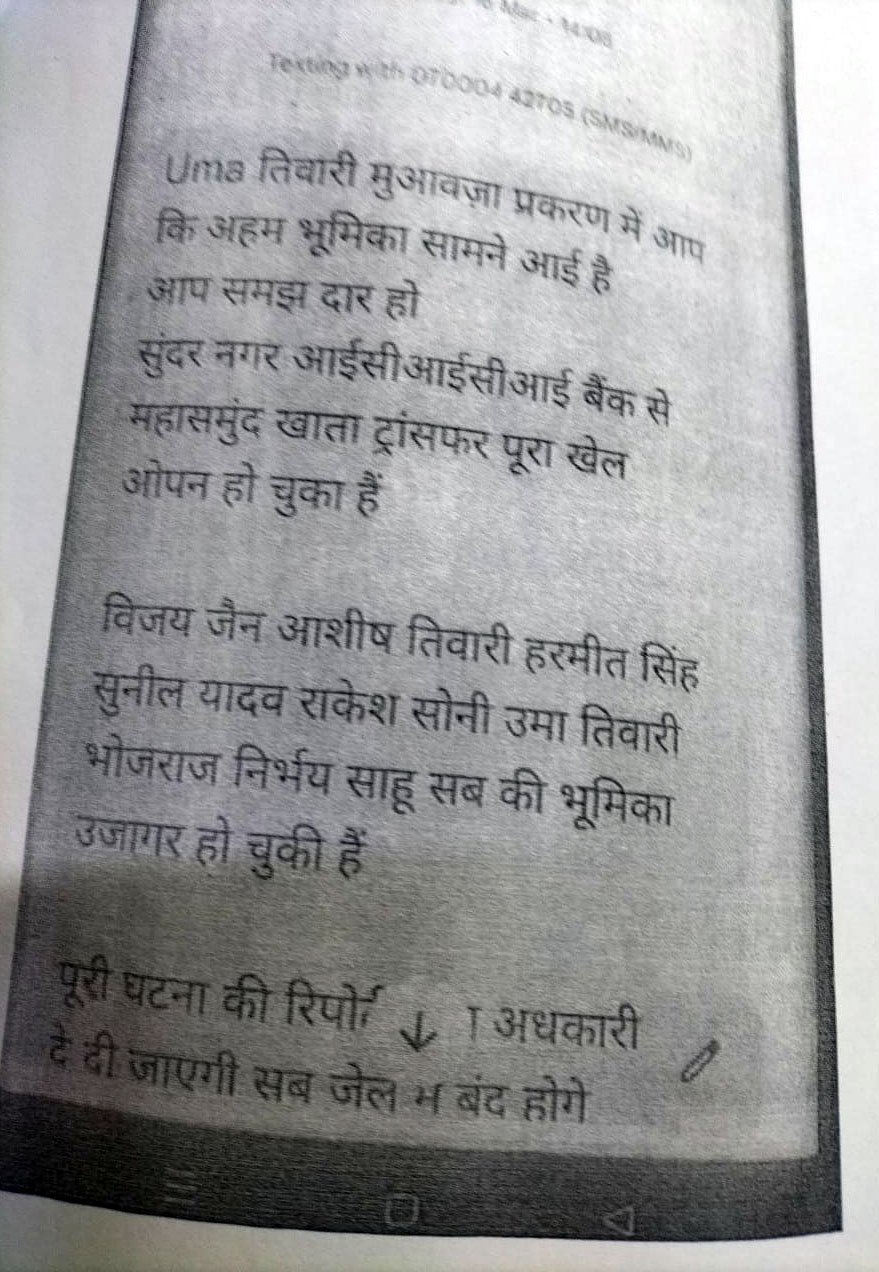 Mar • 14:08
Texting with 070004 42703 (SMS/MMS)
Uma तिवारी मुआवज़ा प्रकरण में आप
कि अहम भूमिका सामने आई है
आप समझ दार हो
सुंदर नगर आईसीआईसीआई बैंक से
महासमुंद खाता ट्रांसफर पूरा खेल
ओपन हो चुका हैं
विजय जैन आशीष तिवारी हरमीत सिंह
सुनील यादव राकेश सोनी उमा तिवारी
भोजराज निर्भय साहू सब की भूमिका
उजागर हो चुकी हैं
पूरी घटना की अधकारी
दे दी जाएगी सब जेल बंद होगे